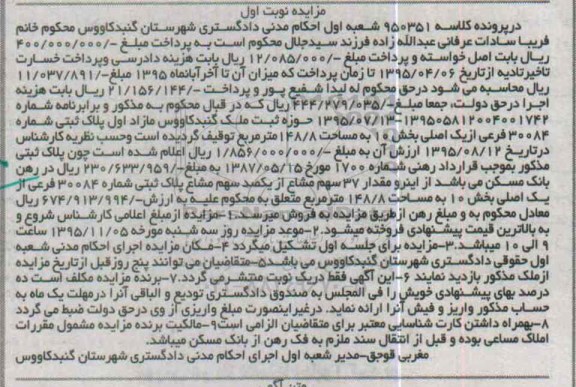 مزایده نوبت اول
درپرونده کلاسه ۹۵۰۳۵۱ شعبه اول احکام مدنی دادگستری شهرستان گنبدکاووس محکوم خانم
فریبا سادات عرفانی عبدالله زاده فرزند سیدجلال محکوم است به پرداخت مبلغ -/۴۰۰/۰۰۰/۰۰۰
ریال بابت اصل خواسته و پرداخت مبلغ -/۱۲/۰۸۵/۰۰۰ ریال بابت هزینه دادرسی وپرداخت خسارت
تاخیرتادیه ازتاریخ ۱۳۹۵/۰۴/۰۶ تا زمان پرداخت که میزان آن تا آخرآبانماه ۱۳۹۵ مبلغ-/۱۱/۰۳۷/۸۹۱
ریال محاسبه می شود درحق محکوم له لیدا شفیع پور و پرداخت -/۲۱/۱۵۶/۱۴۴ ریال بابت هزینه
اجرا درحق دولت، جمعا مبلغ-/۴۴۴/۲۷۹/۰۳۵ ریال که در قبال محکوم به مذکور و برابرنامه شماره
۱۳۹۵۰۵۸۱۲۰۰۴۰۰۱۷۴۲-۱۳۹۵/۰۷/۱۳ حوزه ثبت ملک گنبدکاووس مازاد اول پلاک ثبتی شماره
۳۰۰۸۴ فرعی ازیک اصلی بخش ۱۰ به مساحت ۱۴۸/۸ مترمربع توقیف گردیده است وحسب نظریه کارشناس
درتاریخ ۱۳۹۵/۰۸/۱۲ ارزش آن به مبلغ -/۱/۸۵۶/۰۰۰/۰۰۰ ریال اعلام شده است چون پلاک ثبتی
مذکور بموجب قرارداد رهنی شماره ۱۷۰۰ مورخ ۱۳۸۷/۰۵/۱۵ به مبلغ-/۲۳۰/۶۳۳/۹۵۹ ریال در رهن
بانک مسکن می باشد از اینرو مقدار ۳۷ سهم مشاع از یکصد سهم مشاع پلاک ثبتی شماره ۳۰۰۸۴ فرعی از
یک اصلی بخش ۱۰ به مساحت ۱۴۸/۸ مترمربع متعلق به محکوم علیه به ارزش-/۶۷۴/۹۱۳/۹۹۴ ریال
معادل محکوم به و مبلغ رهن ازطریق مزایده به فروش میرسد.۱-مزایده ازمبلغ اعلامی کارشناس شروع و
به بالاترین قیمت پیشنهادی فروخته میشود.۲-موعد مزایده روز سه شنبه مورخه ۱۳۹۵/۱۱/۰۵ ساعت
۹ الی ۱۰ میباشد.۳-مزایده برای جلسه اول تشکیل میگردد ۴-مکان مزایده اجرای احکام مدنی شعبه
اول حقوقی دادگستری شهرستان گنبدکاووس می باشد۵-متقاضیان می توانند پنج روز قبل ازتاریخ مزایده
ازملک مذکور بازدید نمایند ۶-این آگهی فقط دریک نوبت منتشر می گردد.۷-برنده مزایده مکلف است ده
درصد بهای پیشنهادی خویش را فی المجلس به صندوق دادگستری تودیع و الباقی آنرا درمهلت یک ماه به
حساب مذکور واریز و فیش آنرا ارائه نماید. درغیراینصورت مبلغ واریزی از وی درحق دولت ضبط می گردد
۸-بهمراه داشتن کارت شناسایی معتبر برای متقاضیان الزامی است۹-مالکیت برنده مزایده مشمول مقررات
املاک مساعی بوده و قبل از انتقال سند ملزم به فک رهن از بانک مسکن میباشد.
مغربی قوجق-مدیر شعبه اول اجرای احکام مدنی دادگستری شهرستان گنبدکاووس